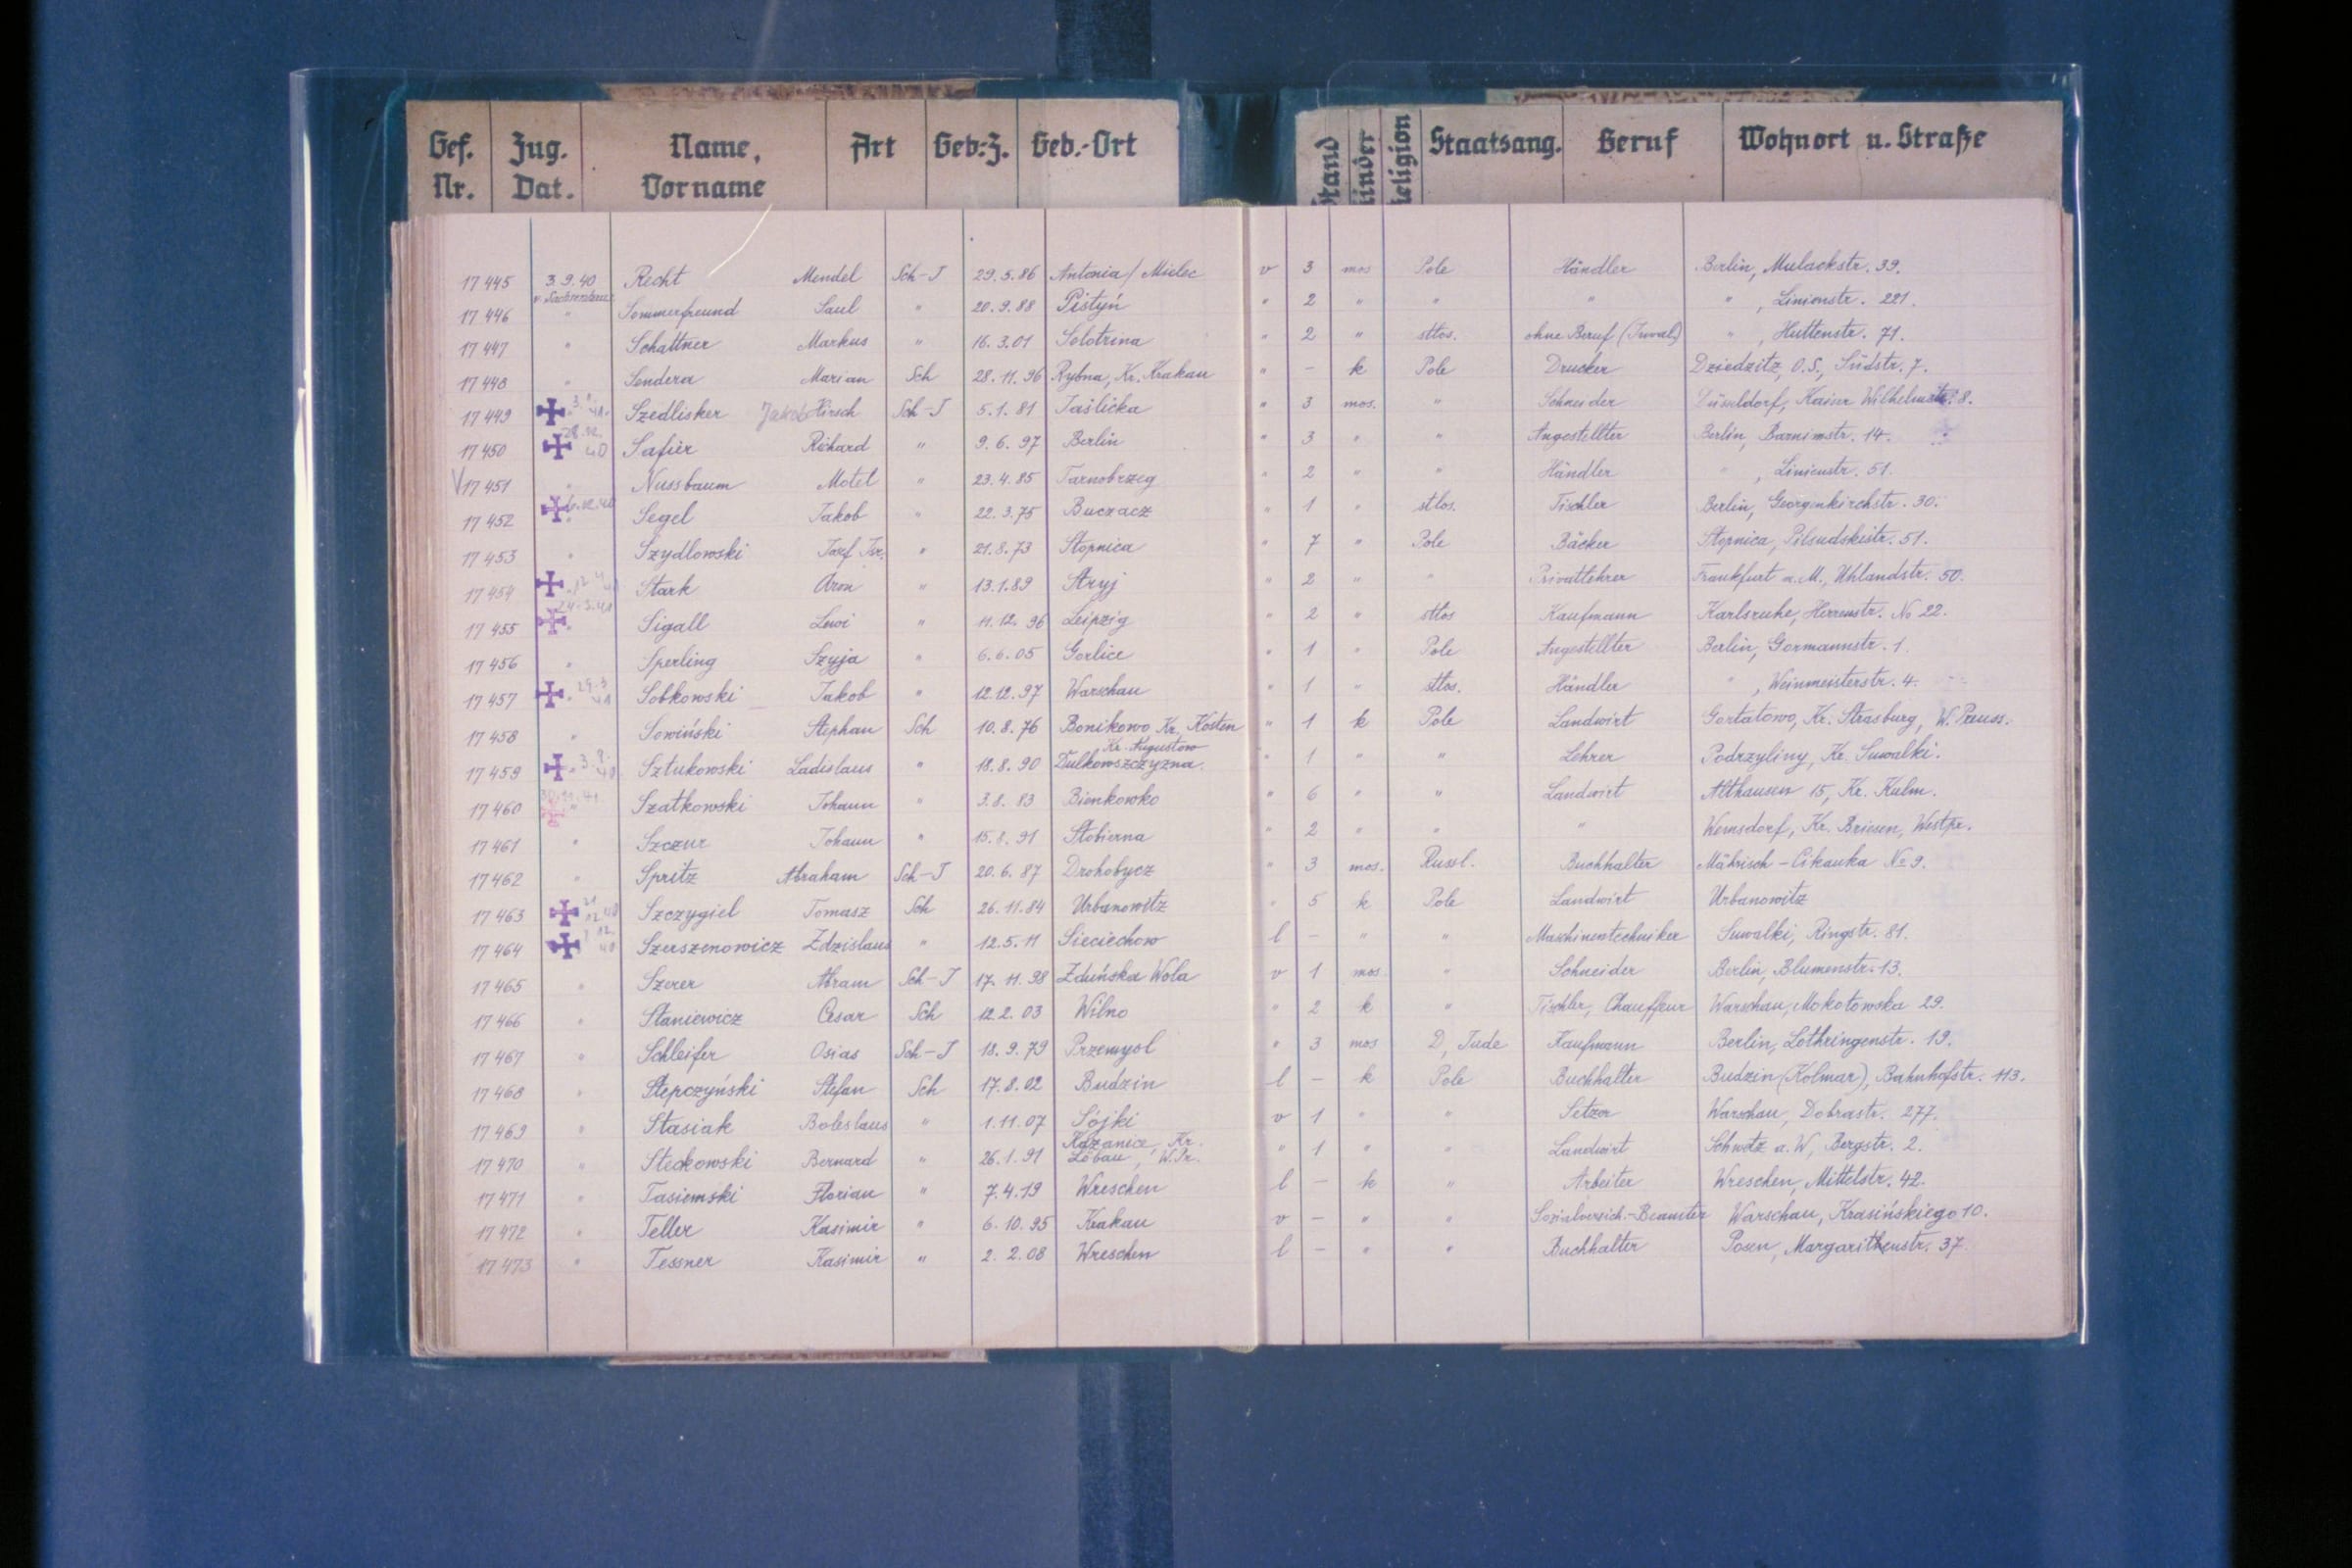 Gef. Nr. Zug. Dat. Name, Vorname Art Geb.-Z. Geb.-Ort Stand Kinder Religion Staatsang. Beruf Wohnort u. Straße
17 445 3.9.40 Recht Mendel Sch-J 29.5.86 Antonia / Mielec v 3 mos Pole Händler Berlin, Mulackstr. 39.
17 446 " Sommerfreund Saul " 20.9.88 Pistyń " 2 " " " " , Linienstr. 221.
17 447 " Schattner Markus " 16.3.01 Solotrina " 2 " stlos. ohne Beruf " , Huttenstr. 71.
17 448 " Sendera Marian Sch 28.11.96 Rybna, Kr. Krakau " - k Pole Drucker Dziedzitz, O.S., Südstr. 7.
17 449 " Szedlisker Jakob Hirsch Sch-J 5.1.81 Jaślicka " 3 mos. " Schneider Düsseldorf, Kaiser Wilhelmstr. 8.
17 450 28.12.40 Safier Richard " 9.6.97 Berlin " 3 " " Angestellter Berlin, Barnimstr. 14.
17 451 " Nussbaum Motel " 23.4.85 Tarnobrzeg " 2 " " Händler " , Linienstr. 51.
17 452 " Segel Jakob " 22.3.75 Buczacz " 1 " stlos. Tischler Berlin, Georgenkirchstr. 30.
17 453 " Szydlowski Josef Isr. " 21.8.73 Stopnica " 7 " Pole Bäcker Stopnica, Pilsudskistr. 51.
17 454 " Stark Aron " 13.1.89 Stryj " 2 " " Privatlehrer Frankfurt a.M., Uhlandstr. 50.
17 455 24.5.41 " Sigall Lewi " 11.12.96 Leipzig " 2 " stlos Kaufmann Karlsruhe, Herrenstr. No 22.
17 456 " Sperling Szyja " 6.6.05 Gorlice " 1 " Pole Angestellter Berlin, Gormannstr. 1.
17 457 " 29.3 41 Sobkowski Jakob " 12.12.97 Warschau " 1 " stlos. Händler " , Weinmeisterstr. 4.
17 458 " Sowiński Stephan Sch 10.8.76 Bonikowo, Kr. Kosten " 1 k Pole Landwirt Gortatowo, Kr. Strasburg, W. Preuss.
17 459 " Sztukowski Ladislaus " 18.8.90 Kr. Augustow Dulkowszczyzna. " 1 " " Lehrer Podrzyliny, Kr. Suwalki.
17 460 " Szatkowski Johann " 3.8.83 Bienkowko " 6 " " Landwirt Althausen 15, Kr. Kulm.
17 461 " Szczur Johann " 15.8.91 Stobierna " 2 " " " Wernsdorf, Kr. Briesen, Westpr.
17 462 " Spritz Abraham Sch-J 20.6.87 Drohobycz " 3 mos. Russl. Buchhalter Mährisch-Cikanka No 9.
17 463 Szczygiel Tomasz Sch 26.11.84 Urbanowitz " 5 k Pole Landwirt Urbanowitz
17 464 Szerszenowicz Zdzislaus " 12.5.11 Sieciechow l - " " Maschinentechniker Suwalki, Ringstr. 81.
17 465 " Szerer Abram Sch-J 17.11.98 Zduńska Wola v 1 mos. " Schneider Berlin, Blumenstr. 13.
17 466 " Staniewicz Cesar Sch 12.2.03 Wilno " 2 k " Tischler, Chauffeur Warschau, Mokotowska 29.
17 467 " Schleifer Osias Sch-J 18.9.79 Przemysl " 3 mos D, Jude Kaufmann Berlin, Lothringenstr. 19.
17 468 " Stepczyński Stefan Sch 17.8.02 Budzin l - k Pole Buchhalter Budzin (Kolmar), Bahnhofstr. 113.
17 469 " Stasiak Boleslaus " 1.11.07 Sójki v 1 " " Setzer Warschau, Dobrastr. 277.
17 470 " Steckowski Bernard " 26.1.91 Kazanice, Kr. Löbau, W.Pr. " 1 " " Landwirt Schwetz a.W, Bergstr. 2.
17 471 " Tasiemski Florian " 7.4.19 Wreschen l - k " Arbeiter Wreschen, Mittelstr. 42.
17 472 " Teller Kasimir " 6.10.95 Krakau v - " " Sozialversich.-Beamter Warschau, Krasińskiego 10.
17 473 " Tessner Kasimir " 2.2.08 Wreschen l - " " Buchhalter Posen, Margarithenstr. 37.